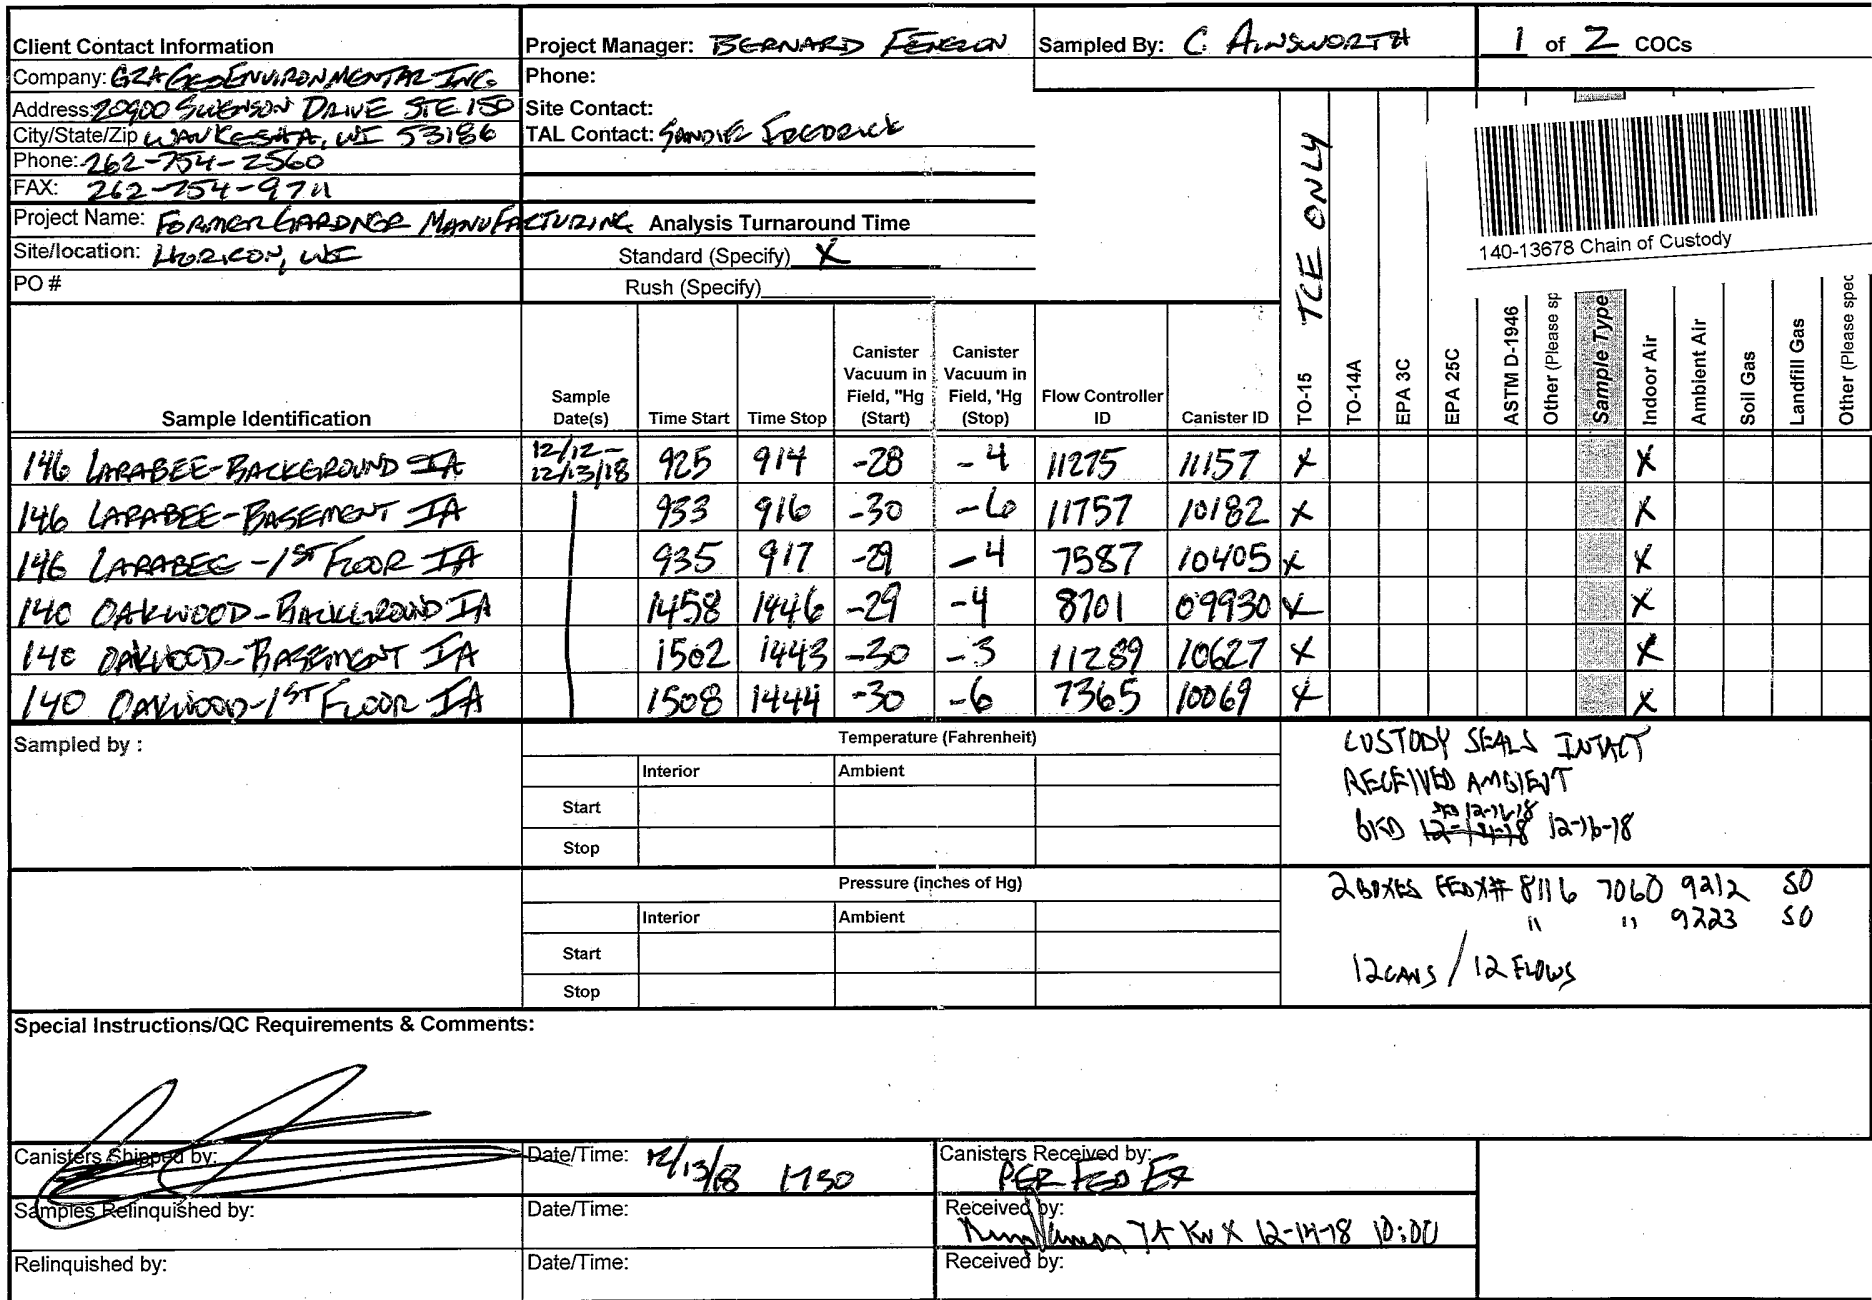 Client Contact Information
Company: GZA GEOENVIRONMENTAL INC.
Address: 20900 SWENSON DRIVE STE 150
City/State/Zip WAUKESHA, WI 53186
Phone: 262-754-2560
FAX: 262-754-9711
Project Name: FORMER GARDNER MANUFACTURING
Site/location: HORICON, WI
PO #
Project Manager: BERNARD FENELON
Phone:
Site Contact:
TAL Contact: SANDIE FREDRICK
Analysis Turnaround Time
Standard (Specify) X
Rush (Specify)
Sampled By: C. AINSWORTH
1 of 2 COCs
140-13678 Chain of Custody
TCE ONLY
Sample Identification
Sample Date(s)
Time Start
Time Stop
Canister Vacuum in Field, "Hg (Start)
Canister Vacuum in Field, 'Hg (Stop)
Flow Controller ID
Canister ID
TO-15
TO-14A
EPA 3C
EPA 25C
ASTM D-1946
Other (Please sp
Sample Type
Indoor Air
Ambient Air
Soil Gas
Landfill Gas
Other (Please spec
146 LARABEE-BACKGROUND IA 12/12-12/13/18 925 914 -28 -4 11275 11157 X X
146 LARABEE-BASEMENT IA 933 916 -30 -6 11757 10182 X X
146 LARABEE-1ST FLOOR IA 935 917 -29 -4 7587 10405 X X
140 OAKWOOD-BACKGROUND IA 1458 1446 -29 -4 8701 09930 X X
140 OAKWOOD-BASEMENT IA 1502 1443 -30 -3 11289 10627 X X
140 OAKWOOD-1ST FLOOR IA 1508 1444 -30 -6 7365 10069 X X
Sampled by :
Temperature (Fahrenheit)
Interior Ambient
Start
Stop
Pressure (inches of Hg)
Interior Ambient
Start
Stop
CUSTODY SEALS INTACT
RECEIVED AMBIENT
12-16-18
12-16-18
2 BOXES FEDX# 8116 7060 9212 SO
" " 9223 SO
12 CANS / 12 FLOWS
Special Instructions/QC Requirements & Comments:
Canisters Shipped by:
Date/Time: 12/13/18 1750
Canisters Received by: PER FED EX
Samples Relinquished by:
Date/Time:
Received by: TA KNX 12-14-18 10:00
Relinquished by:
Date/Time:
Received by: